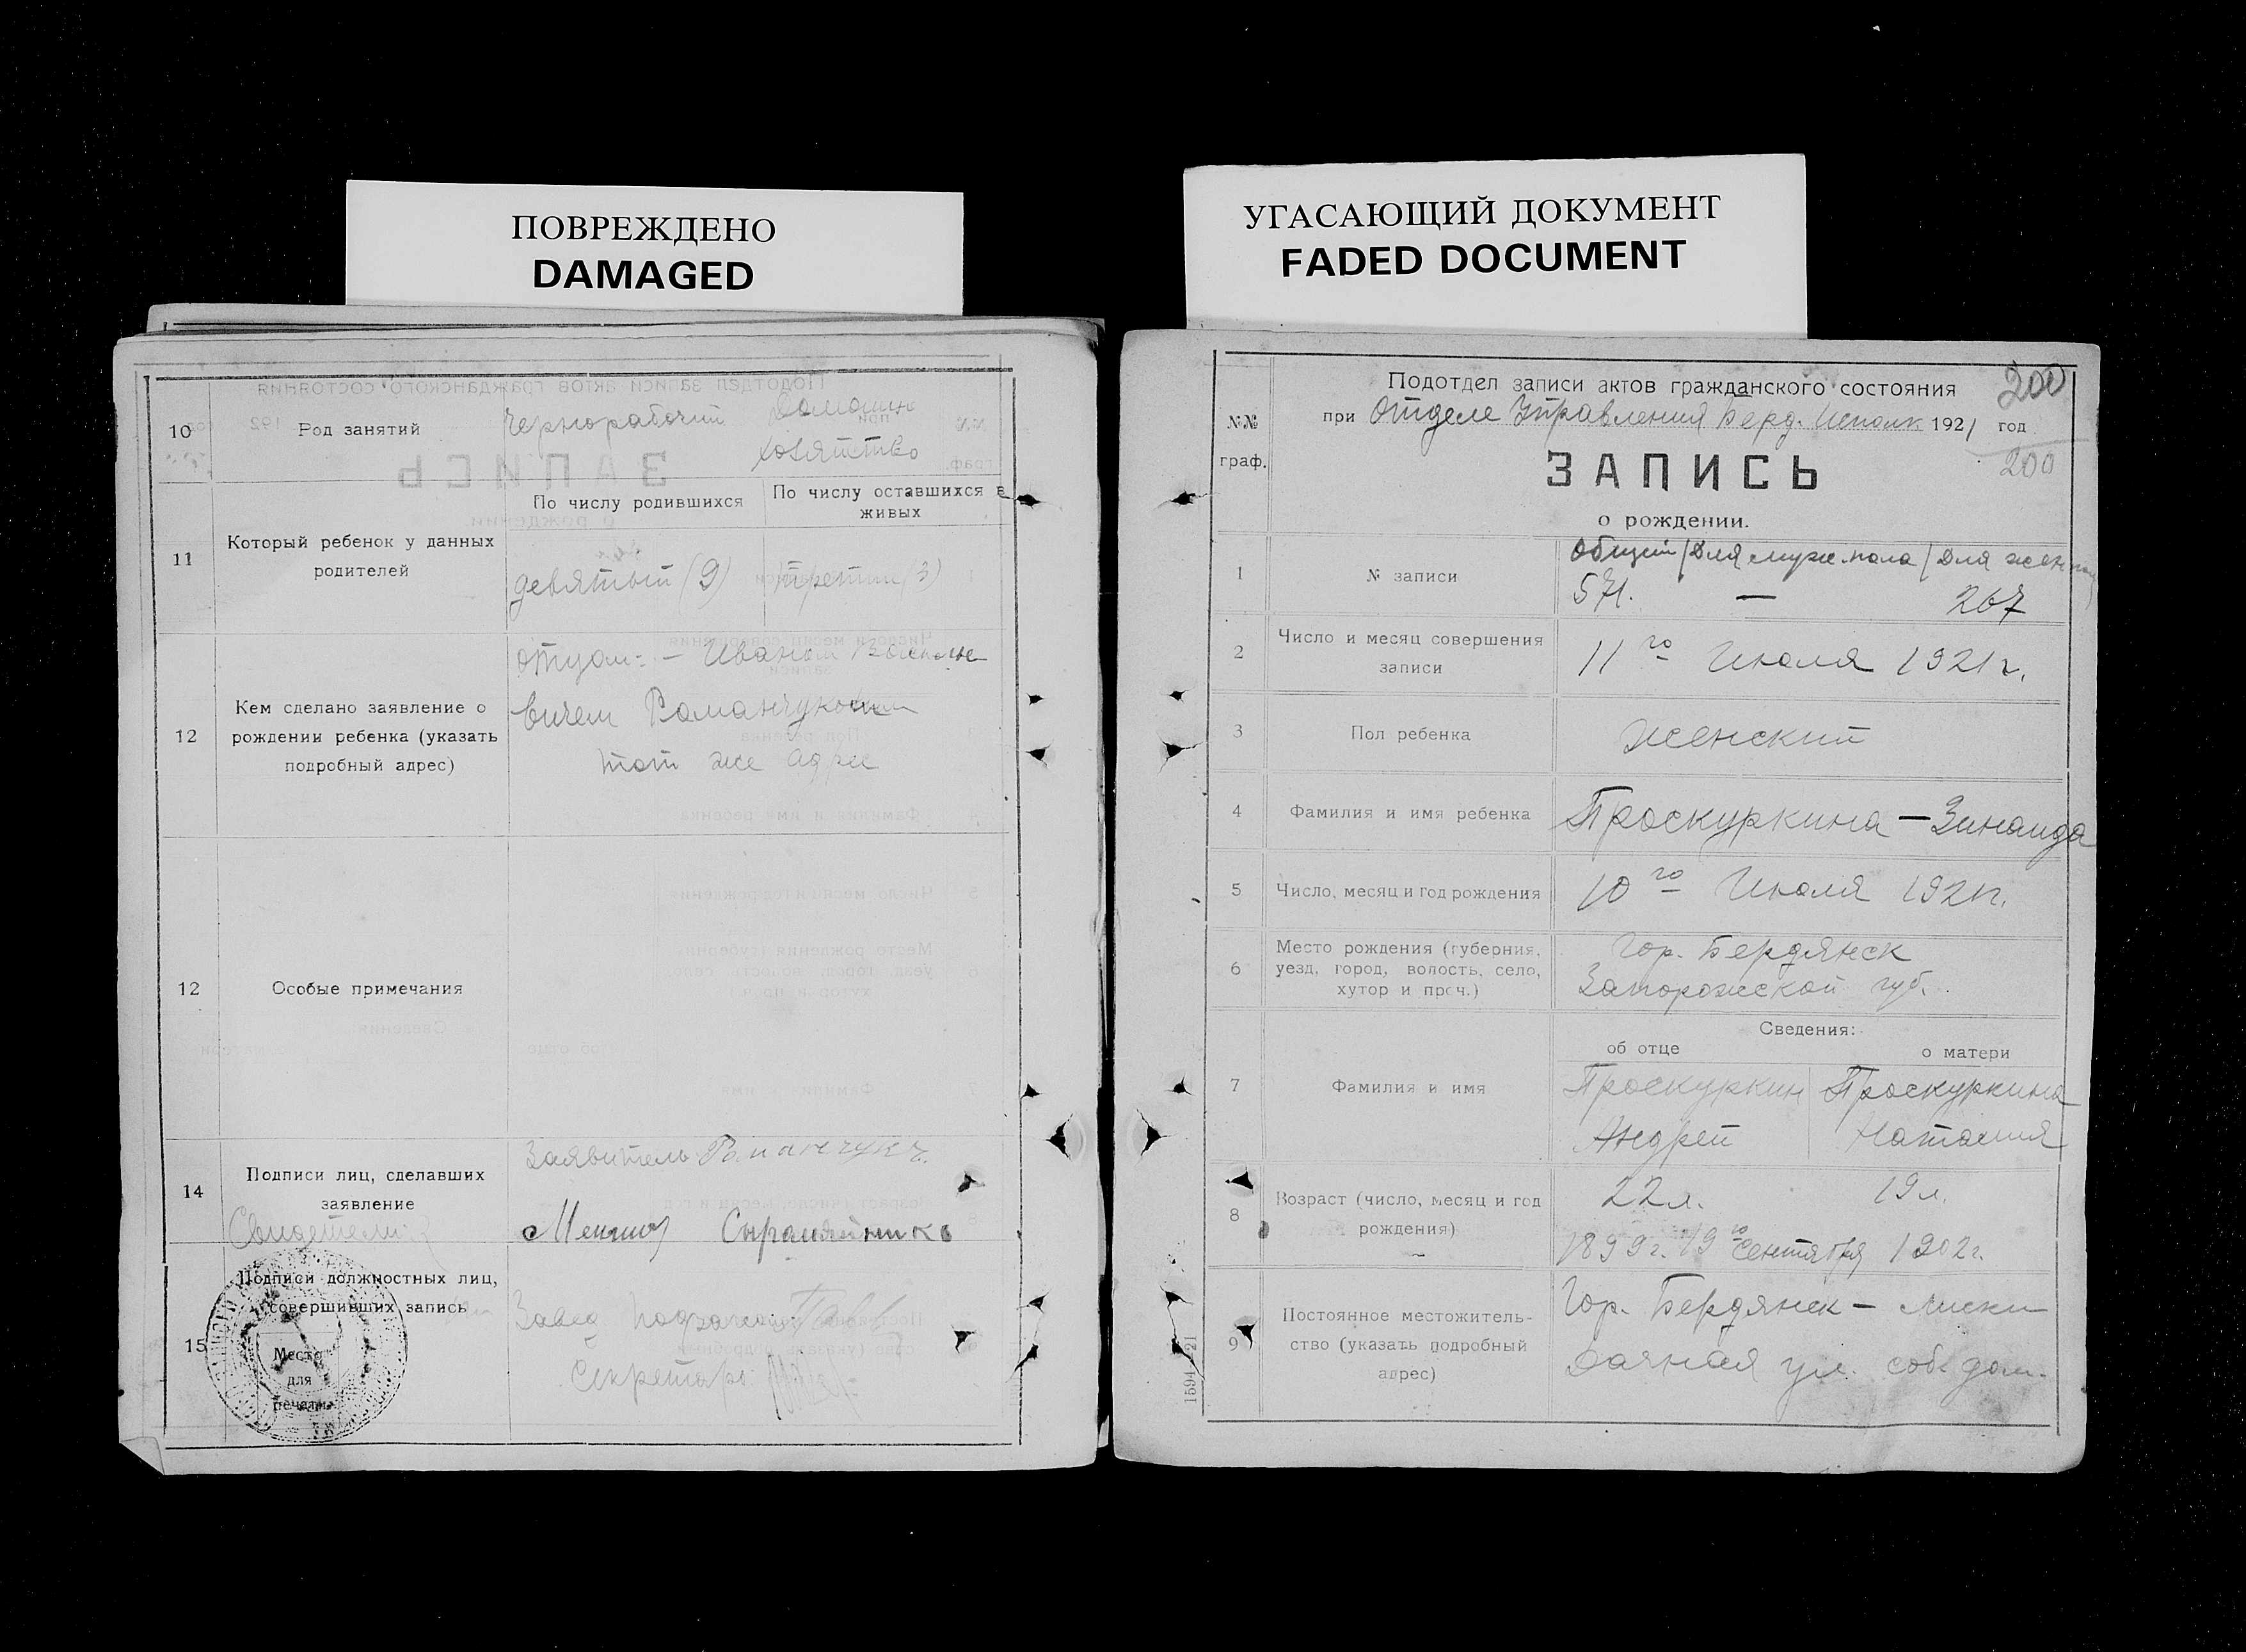 ПОВРЕЖДЕНО
DAMAGED
10
Род занятий
Чернорабочий
Домашнее
хозяйство
11
Который ребенок у данных
родителей
По числу родившихся
По числу оставшихся в
живых
девятый (9)
третий (3)
12
Кем сделано заявление о
рождении ребенка (указать
подробный адрес)
отцом: – Иваном
вичем Романчуковым
тот же адрес
12
Особые примечания
14
Подписи лиц, сделавших
заявление
Свидетели:
Заявитель
15
Подписи должностных лиц,
совершивших запись
Место
для
печати.
Завед.
Секретарь
УГАСАЮЩИЙ ДОКУМЕНТ
FADED DOCUMENT
№№
граф.
Подотдел записи актов гражданского состояния
200
при Отделе Управления Берд. Исполк 1921 год
200
ЗАПИСЬ
о рождении.
1
№ записи
Общий / Для муж. пола / Для жен
571. — 267
2
Число и месяц совершения
записи
11го Июля 1921 г.
3
Пол ребенка
Женский
4
Фамилия и имя ребенка
Проскуркина – Зинаида
5
Число, месяц и год рождения
10го Июля 1921г.
6
Место рождения (губерния,
уезд, город, волость, село,
хутор и проч.)
Гор. Бердянск
Запорожской губ.
Сведения:
об отце
о матери
7
Фамилия и имя
Проскуркин
Андрей
Проскуркина
Наталия
8
Возраст (число, месяц и год
рождения)
22 л.
19 л.
1899 г. 19го Сентября 1902 г.
9
Постоянное местожитель-
ство (указать подробный
адрес)
Гор. Бердянск –
ул. соб. дом.
1594–21